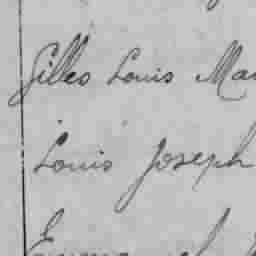 Gilles Louis
Louis Joseph